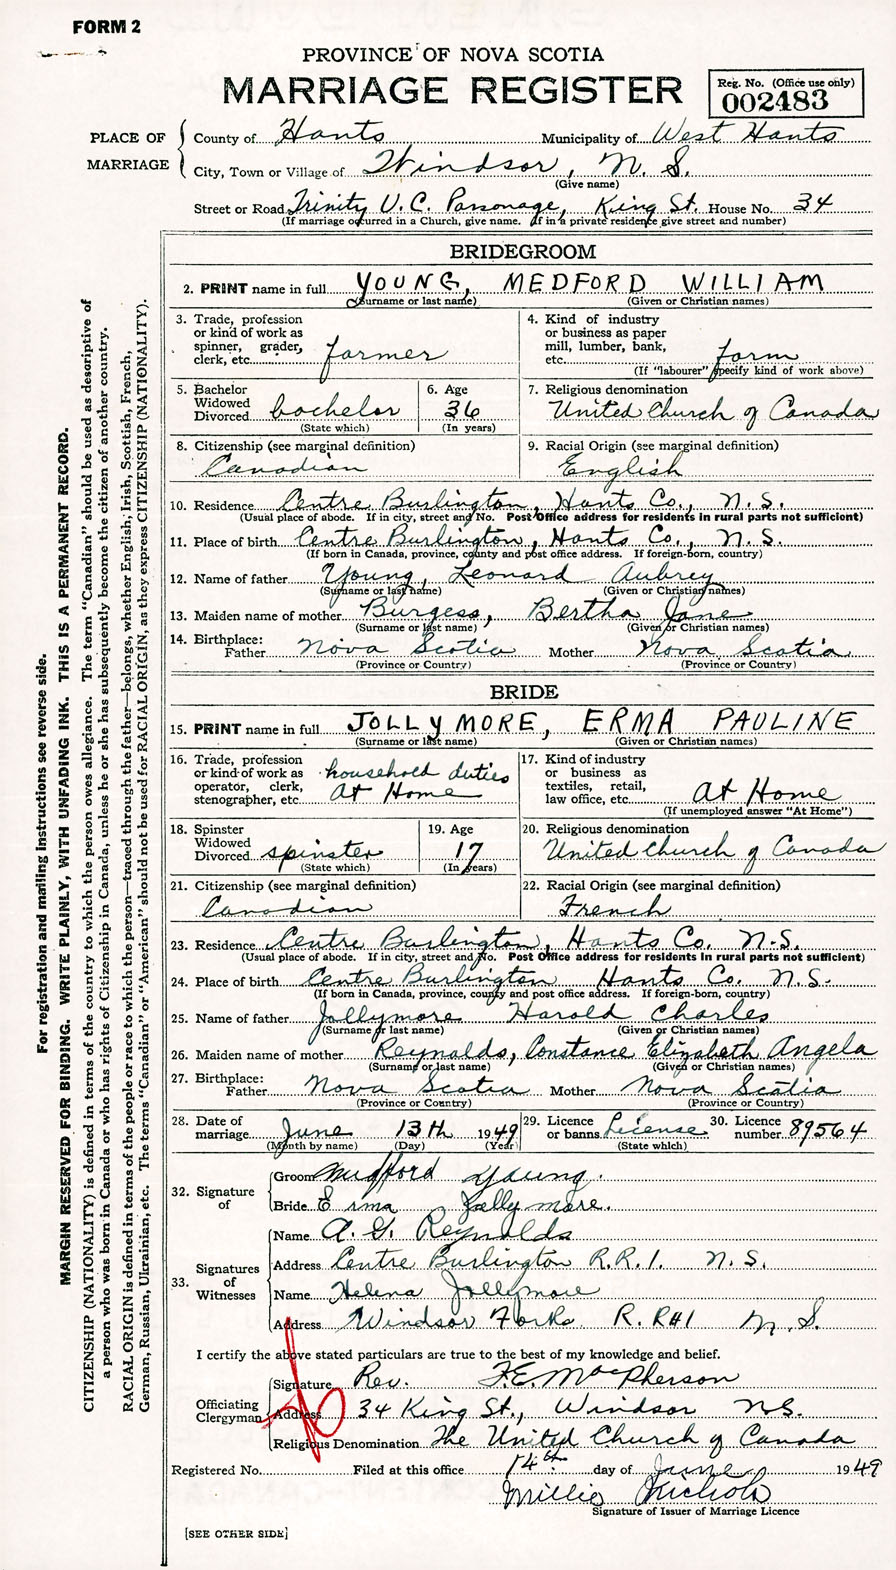 FORM 2
PROVINCE OF NOVA SCOTIA
MARRIAGE REGISTER
Reg. No. (Office use only)
002483
PLACE OF MARRIAGE
County of Hants Municipality of West Hants
City, Town or Village of Windsor, N. S.
(Give name)
Street or Road Trinity U.C. Parsonage, King St. House No. 34
(If marriage occurred in a Church, give name. If in a private residence give street and number)
BRIDEGROOM
2. PRINT name in full YOUNG, MEDFORD WILLIAM
(Surname or last name) (Given or Christian names)
3. Trade, profession or kind of work as spinner, grader, clerk, etc. farmer
4. Kind of industry or business as paper mill, lumber, bank, etc. farm
(If "labourer" specify kind of work above)
5. Bachelor Widowed Divorced bachelor
(State which)
6. Age 36
(In years)
7. Religious denomination
United Church of Canada
8. Citizenship (see marginal definition)
Canadian
9. Racial Origin (see marginal definition)
English
10. Residence Centre Burlington, Hants Co., N.S.
(Usual place of abode. If in city, street and No. Post Office address for residents in rural parts not sufficient)
11. Place of birth Centre Burlington, Hants Co., N.S.
(If born in Canada, province, county and post office address. If foreign-born, country)
12. Name of father Young, Leonard Aubrey
(Surname or last name) (Given or Christian names)
13. Maiden name of mother Burgess, Bertha Jane
(Surname or last name) (Given or Christian names)
14. Birthplace:
Father Nova Scotia Mother Nova Scotia
(Province or Country) (Province or Country)
BRIDE
15. PRINT name in full JOLLYMORE, ERMA PAULINE
(Surname or last name) (Given or Christian names)
16. Trade, profession or kind of work as operator, clerk, stenographer, etc. household duties At Home
17. Kind of industry or business as textiles, retail, law office, etc. At Home
(If unemployed answer "At Home")
18. Spinster Widowed Divorced spinster
(State which)
19. Age 17
(In years)
20. Religious denomination
United Church of Canada
21. Citizenship (see marginal definition)
Canadian
22. Racial Origin (see marginal definition)
French
23. Residence Centre Burlington, Hants Co. N.S.
(Usual place of abode. If in city, street and No. Post Office address for residents in rural parts not sufficient)
24. Place of birth Centre Burlington Hants Co. N.S.
(If born in Canada, province, county and post office address. If foreign-born, country)
25. Name of father Jollymore Harold Charles
(Surname or last name) (Given or Christian names)
26. Maiden name of mother Reynalds, Constance Elizabeth Angela
(Surname or last name) (Given or Christian names)
27. Birthplace:
Father Nova Scotia Mother Nova Scotia
(Province or Country) (Province or Country)
28. Date of marriage June 13th 1949
(Month by name) (Day) (Year)
29. Licence or banns License
(State which)
30. Licence number 89564
32. Signature of
Groom Medford Young.
Bride Erma Jollymore.
33. Signatures of Witnesses
Name A. G. Reynolds
Address Centre Burlington R.R.1. N.S.
Name Helena Jollymore
Address Windsor Forks R. R#1 N.S.
I certify the above stated particulars are true to the best of my knowledge and belief.
Officiating Clergyman
Signature Rev. F.E. MacPherson
Address 34 King St., Windsor N.S.
Religious Denomination The United Church of Canada
Registered No. Filed at this office 14th day of June 1949
Millie Nichols
Signature of Issuer of Marriage Licence
[SEE OTHER SIDE]
For registration and mailing instructions see reverse side.
MARGIN RESERVED FOR BINDING. WRITE PLAINLY, WITH UNFADING INK. THIS IS A PERMANENT RECORD.
CITIZENSHIP (NATIONALITY) is defined in terms of the country to which the person owes allegiance. The term "Canadian" should be used as descriptive of
a person who was born in Canada or who has rights of Citizenship in Canada, unless he or she has subsequently become the citizen of another country.
RACIAL ORIGIN is defined in terms of the people or race to which the person—traced through the father—belongs, whether English, Irish, Scottish, French,
German, Russian, Ukrainian, etc. The terms "Canadian" or "American" should not be used for RACIAL ORIGIN, as they express CITIZENSHIP (NATIONALITY).